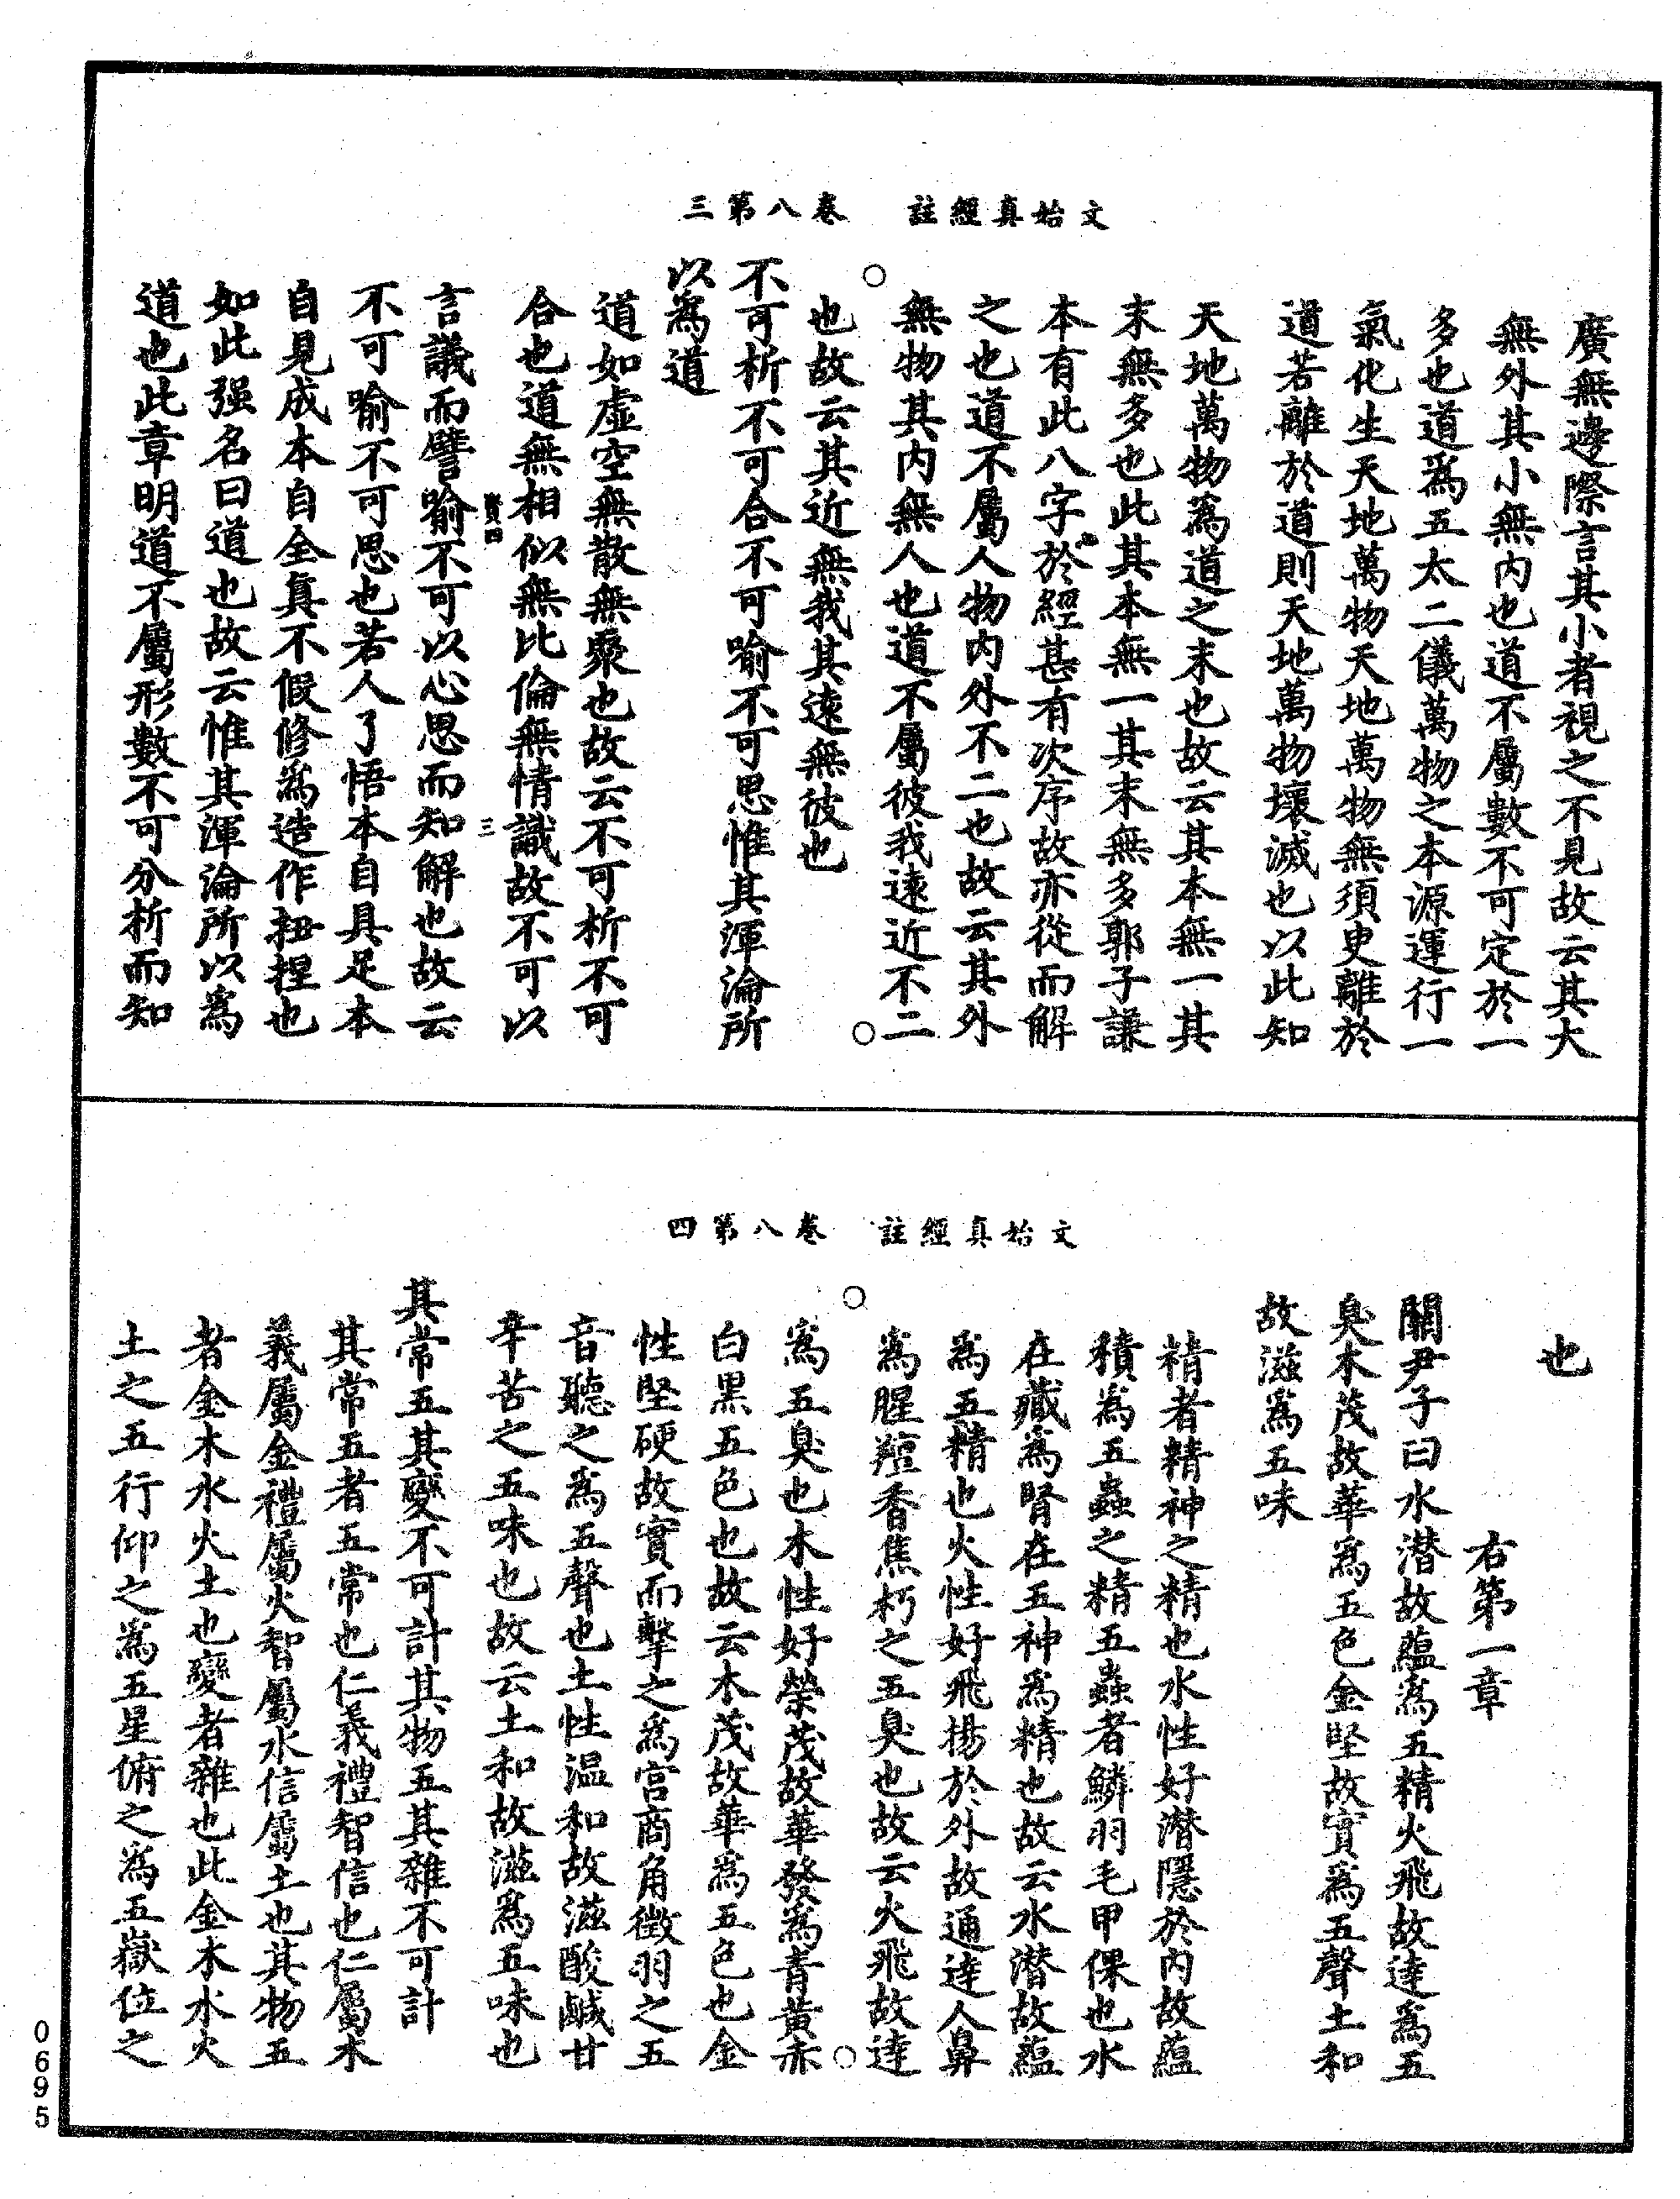 文始真經註　卷八第三
廣無邊際言其小者視之不見故云其大
無外其小無內也道不屬數不可定於一
多也道為五太二儀萬物之本源運行一
氣化生天地萬物天地萬物無須臾離於
道若離於道則天地萬物壞滅也以此知
天地萬物為道之末也故云其本無一其
末無多也此其本無一其末無多郭子謙
本有此八字於經甚有次序故亦從而解
之也道不屬人物內外不二也故云其外
無物其內無人也道不屬彼我遠近不二
也故云其近無我其遠無彼也
不可析不可合不可喻不可思惟其渾淪所
以為道
道如虛空無散無聚也故云不可析不可
合也道無相似無比倫無情識故不可以
言議而譬喻不可以心思而知解也故云
不可喻不可思也若人了悟本自具足本
自見成本自全真不假修為造作扭捏也
如此强名曰道也故云惟其渾淪所以為
道也此章明道不屬形數不可分析而知
文始真經註　卷八第四
也
右第一章
關尹子曰水潜故蘊為五精火飛故達為五
臭木茂故華為五色金堅故實為五聲土和
故滋為五味
精者精神之精也水性好潜隱於內故蘊
積為五蟲之精五蟲者鱗羽毛甲倮也水
在藏為腎在五神為精也故云水潜故蘊
為五精也火性好飛揚於外故通達人鼻
為腥羶香焦朽之五臭也故云火飛故達
為五臭也木性好榮茂故華發為青黃赤
白黑五色也故云木茂故華為五色也金
性堅硬故實而擊之為宮商角徵羽之五
音聽之為五聲也土性温和故滋酸鹹甘
辛苦之五味也故云土和故滋為五味也
其常五其變不可計其物五其雜不可計
其常五者五常也仁義禮智信也仁屬木
義屬金禮屬火智屬水信屬土也其物五
者金木水火土也變者雜也此金木水火
土之五行仰之為五星俯之為五嶽位之
0695